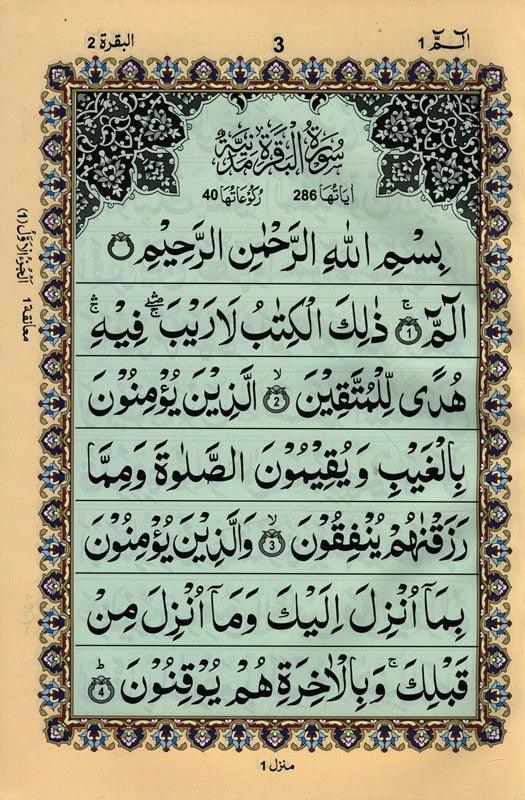 الٓـمّٓ 1
3
البقرة 2
سُوۡرَةُ الۡبَقَرَةِ مَدَنِيَّةٌ
اٰيَاتُهَا 286 رُكُوۡعَاتُهَا 40
بِسۡمِ اللّٰهِ الرَّحۡمٰنِ الرَّحِيۡمِ
الٓمّٓ ۚ﴿1﴾ ذٰلِكَ الۡكِتٰبُ لَا رَيۡبَ ۛۖ فِيۡهِ ۛۚ
هُدًى لِّلۡمُتَّقِيۡنَ ۙ﴿2﴾ الَّذِيۡنَ يُؤۡمِنُوۡنَ
بِالۡغَيۡبِ وَ يُقِيۡمُوۡنَ الصَّلٰوةَ وَمِمَّا
رَزَقۡنٰهُمۡ يُنۡفِقُوۡنَ ۙ﴿3﴾ وَالَّذِيۡنَ يُؤۡمِنُوۡنَ
بِمَاۤ اُنۡزِلَ اِلَيۡكَ وَمَاۤ اُنۡزِلَ مِنۡ
قَبۡلِكَ ۚ وَبِالۡاٰخِرَةِ هُمۡ يُوۡقِنُوۡنَ ؕ﴿4﴾
اَلۡجُزۡءُ الۡاَوَّلُ (1)
معانقة 1
منزل 1